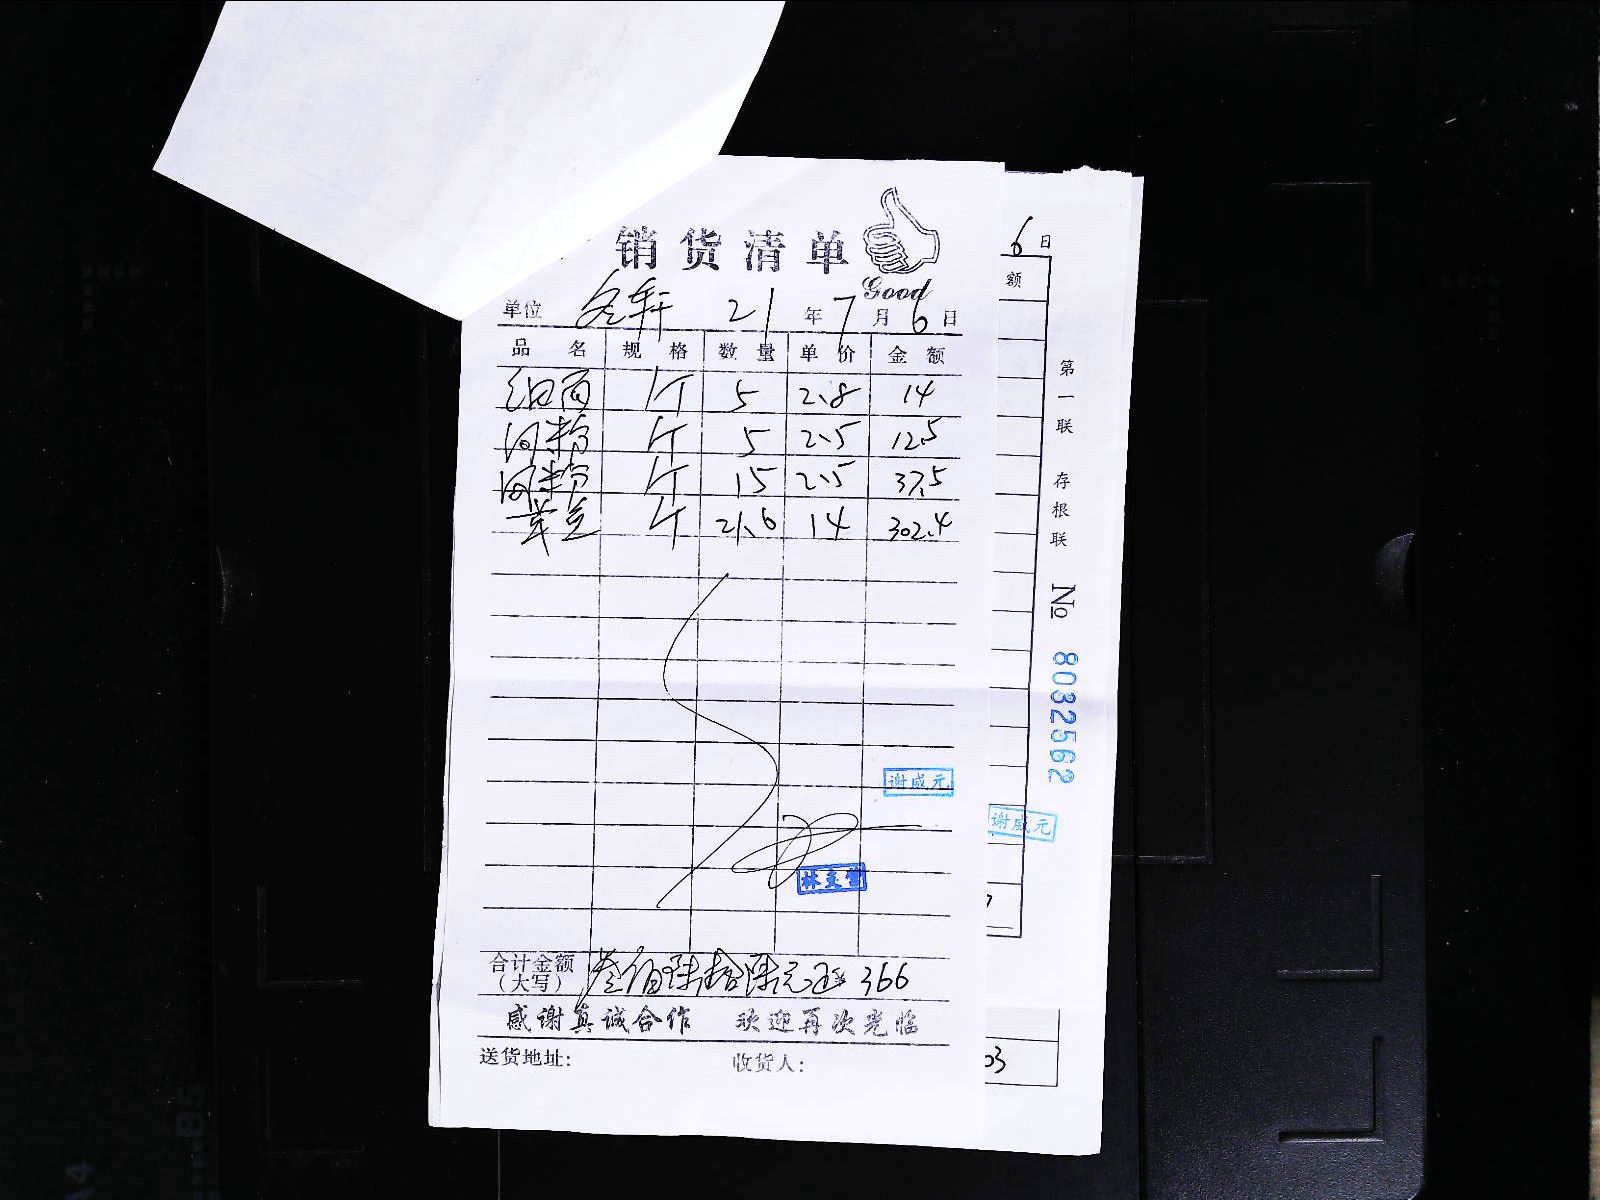 销货清单
Good
单位 冬轩 21年7月6日
品名 规格 数量 单价 金额
个 5 2.8 14
河粉 个 5 2.5 12.5
河粉 个 15 2.5 37.5
个 21.6 14 302.4
谢咸元
合计金额（大写） 叁佰陆拾陆元正 366
感谢真诚合作 欢迎再次光临
送货地址: 收货人:
6日
额
第一联 存根联 № 8032562
谢咸元
03